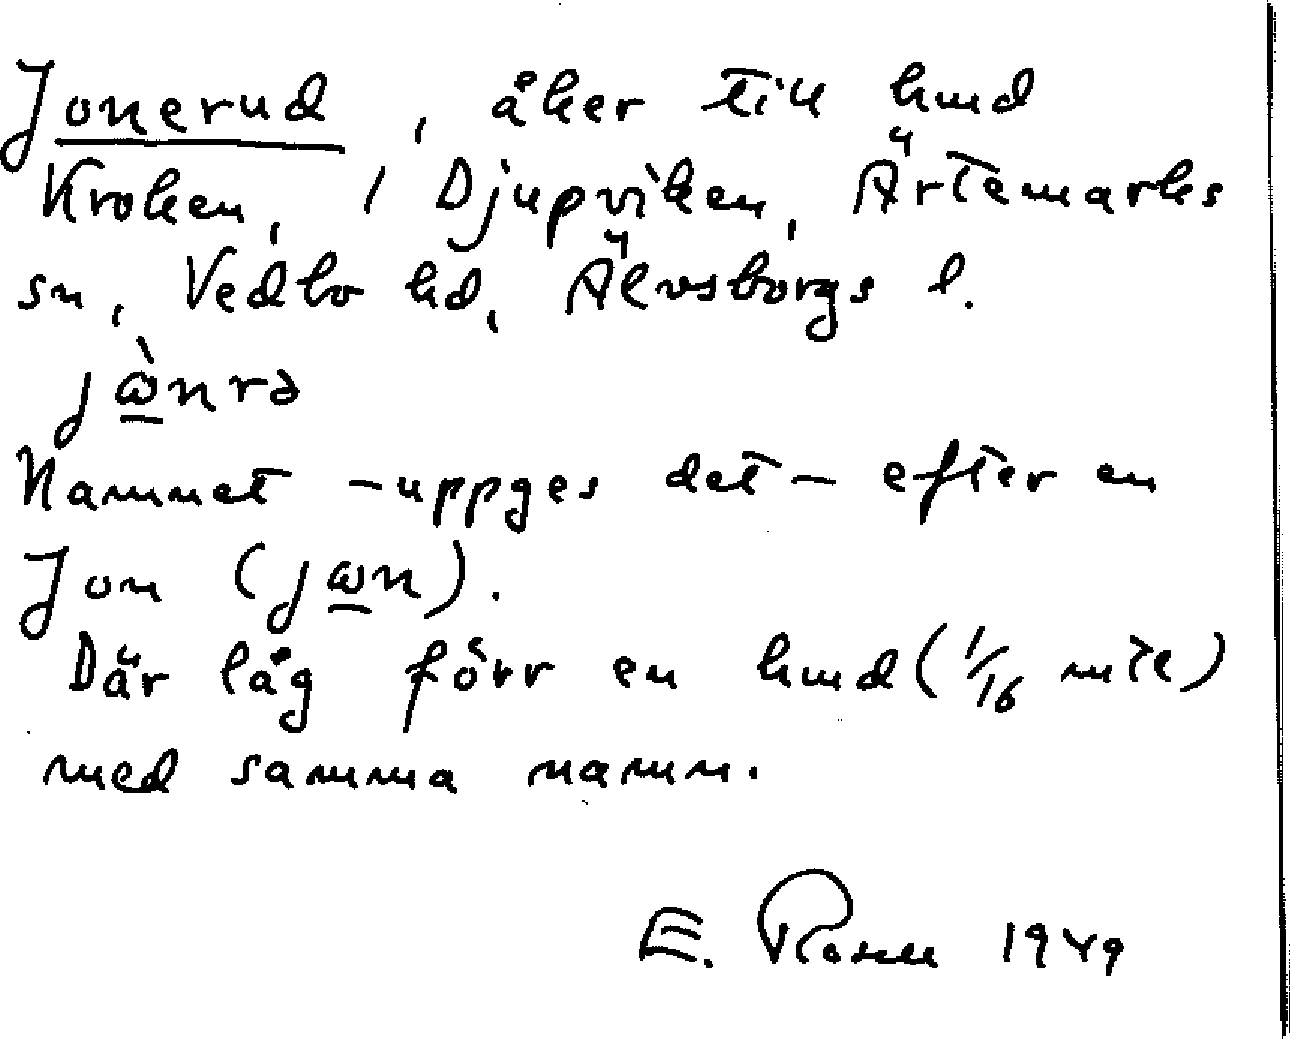 Jonerud, åker till hmd
Kroken, 1 Djupviken, Ärtemarks
sn, Vedbo hd, Älvsborgs l.
jὼnrə
Namnet - uppges det - efter en
Jon (jωn).
Där låg förr en hmd (1/16 mtl)
med samma namn.
E. Rosell 1949